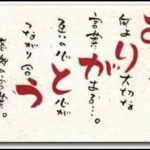 ありがとう
何より大切な
言葉がある…。
互いの心と心が
つながり合う